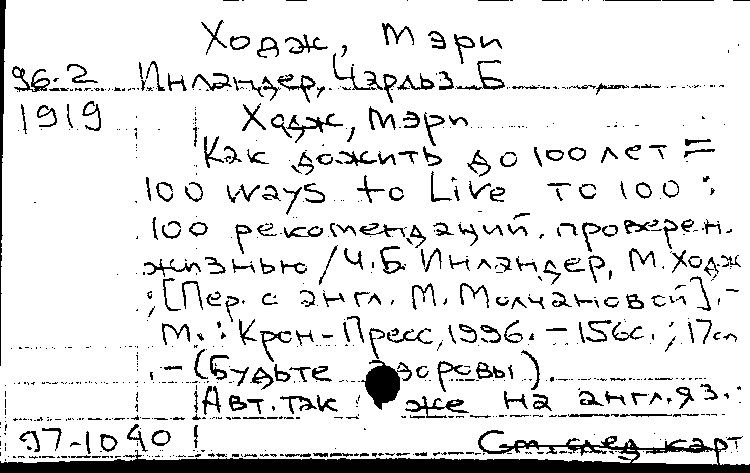 Ходж, Мэри
96-2 Инландер, Чарльз Б
1919 Ходж, Мэри
Как дожить до 100 лет =
100 ways to Live то 100 :
100 рекомендаций, проверен.
жизнью / Ч.Б. Инландер, М. Ходж
; [Пер. с англ. М. Молчановой]. -
М. : Крон-Пресс, 1996. - 156с. ; 17см
. - (Будьте здоровы).
Авт. так же на англ. яз. :
97-1040 См. след карт